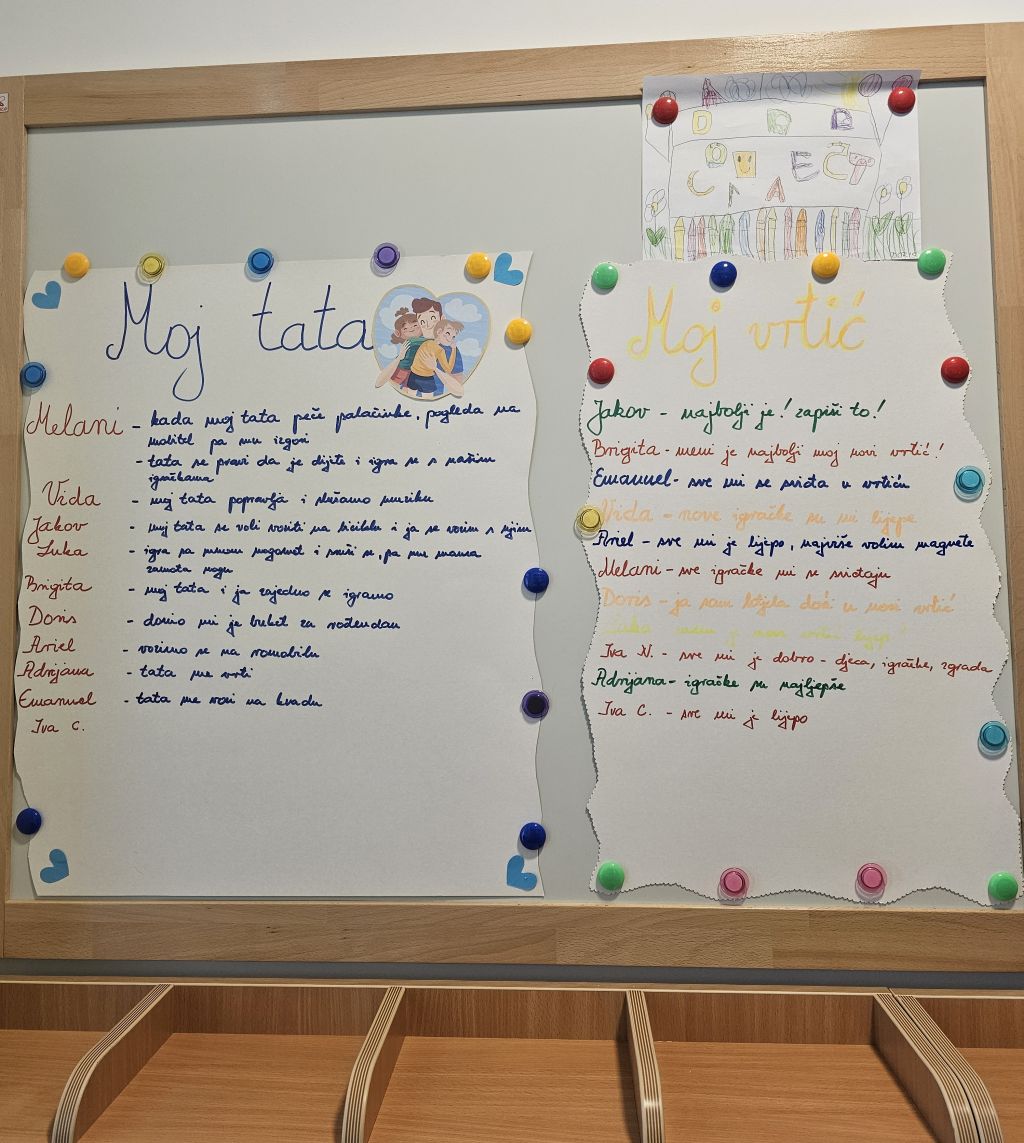 DOBRO
DOŠLI
Moj tata
Melani - kada moj tata peče palačinke, pogleda na
mobitel pa mu izgori
- tata se pravi da je dijete i igra se s našim
igračkama
Vida - moj tata popravlja i slušamo muziku
Jakov - moj tata se voli voziti na biciklu i ja se vozim s njim
Luka - igra sa mnom nogomet i smiješi se, pa mu mama
zamota nogu
Brigita - moj tata i ja zajedno se igramo
Doris - donio mi je buket za rođendan
Ariel - vozimo se na romobilu
Adrijana - tata me vrti
Emanuel - tata me vozi na kvadu
Iva C.
Moj vrtić
Jakov - najbolji je! zapiši to!
Brigita - meni je najbolji moj novi vrtić!
Emanuel - sve mi se sviđa u vrtiću
Vida - nove igračke su mi lijepe
Ariel - sve mi je lijepo, najviše volim magnete
Melani - sve igračke mi se sviđaju
Doris - ja sam htjela doći u novi vrtić
Luka novi vrtić lijep!
Iva N. - sve mi je dobro - djeca, igračke, zgrada
Adrijana - igračke su najljepše
Iva C. - sve mi je lijepo